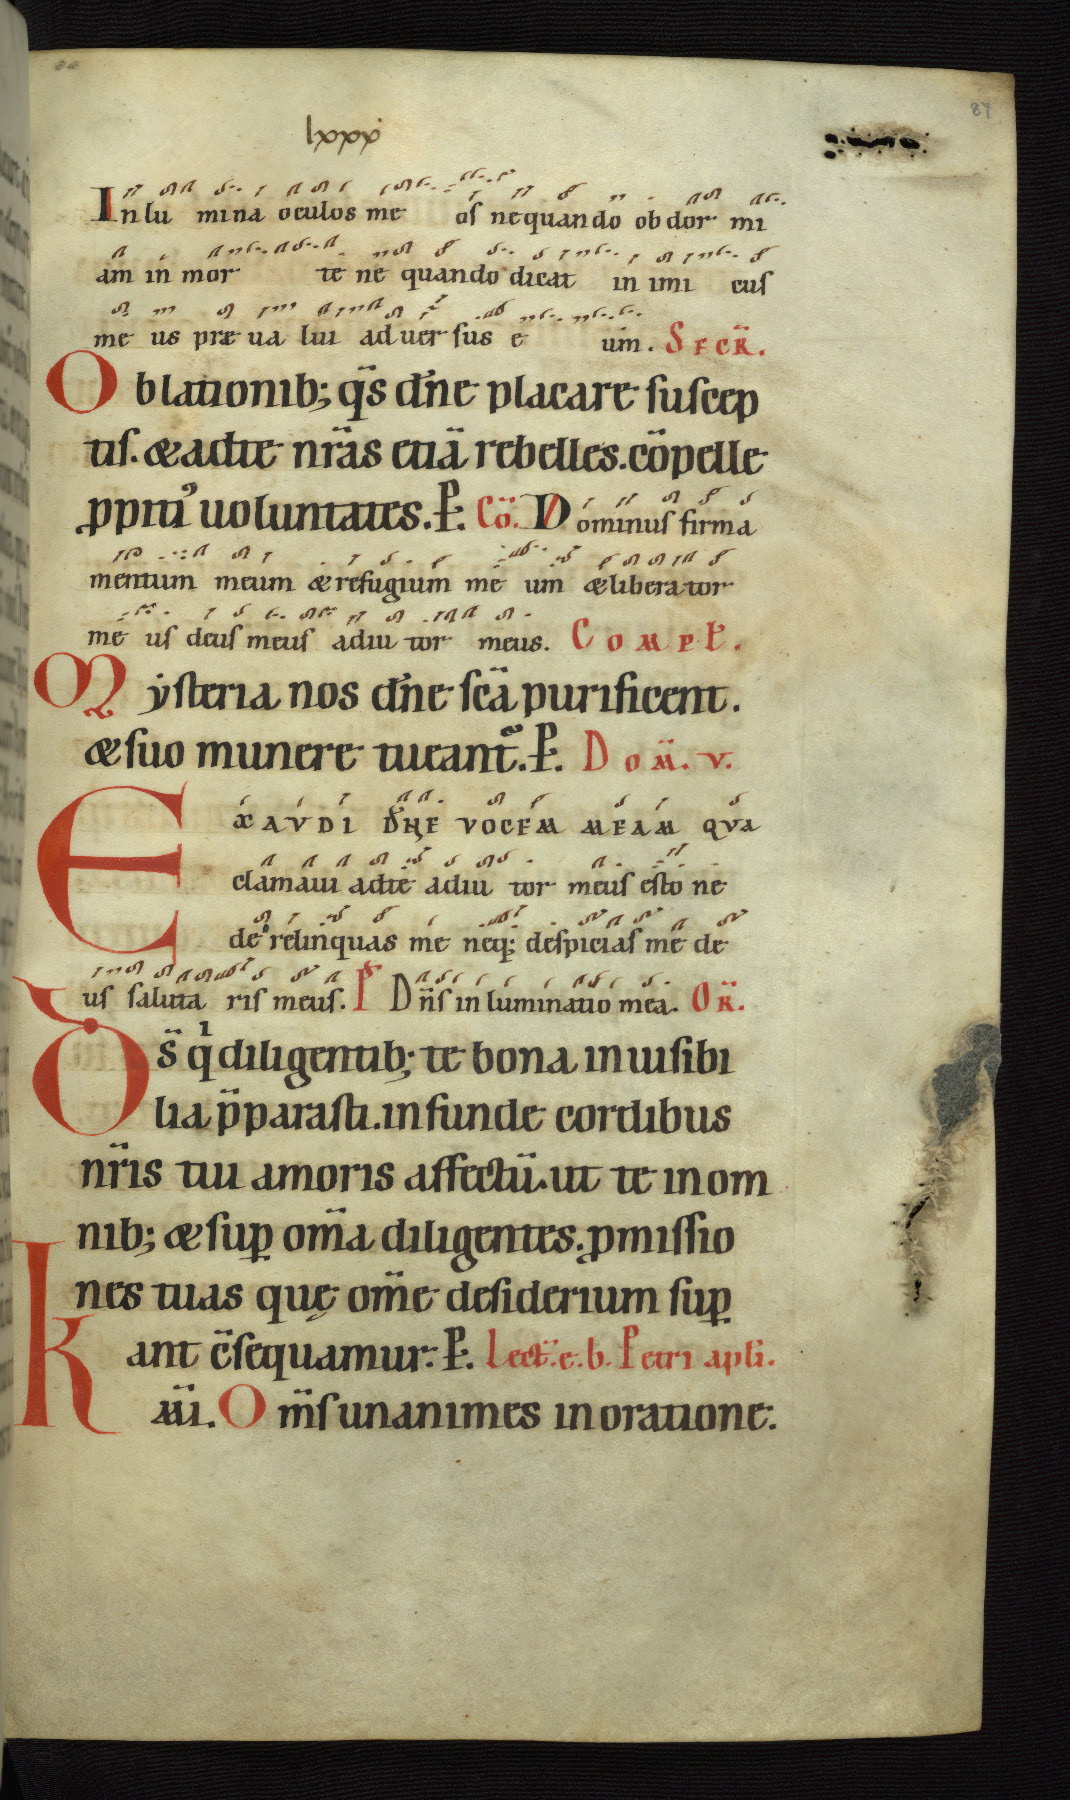 lxxx
87
Inlu mina oculos me os nequando ob dor mi
am in mor te ne quando dicat in imi cus
me us præ ua lui ad uer sus e um. SECR̄.
Oblationib; q̄s dn̄e placare suscep
tis. & ad te nr̄as etiā rebelles. cōpelle
ꝓpitiꝰ uoluntates. P. Cō. Dominus firma
mentum meum & refugium me um & liberator
me us deus meus adiu tor meus. COMPL.
Mysteria nos dn̄e sc̄a purificent.
& suo munere tueant᷑. P. DOM̄. V.
EXAUDI DN̄E VOCEM MEAM QVA
clamaui ad te adiu tor meus esto ne
derelinquas me neq; despicias me de
us saluta ris meus. P Dn̄s inluminatio mea. OR̄.
Ds̄ qi diligentib; te bona inuisibi
lia p̄parasti. infunde cordibus
nr̄is tui amoris affectū. ut te in om
nib; & suꝑ om̄a diligentes. ꝓmissio
nes tuas quę om̄e desiderium suꝑ
ant c̄sequamur. P. Lect̄. e. b. Petri apli.
K m̄i. Om̄s unanimes in oratione.